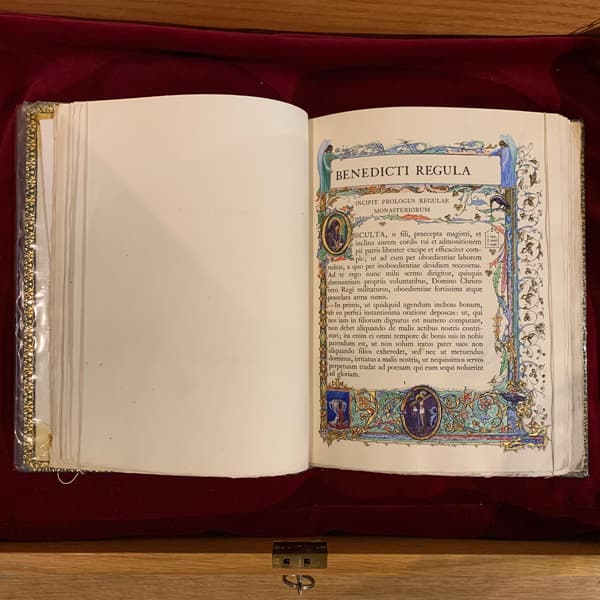 BENEDICTI REGULA
INCIPIT PROLOGUS REGULAE
MONASTERIORUM
SCULTA, o fili, praecepta magistri, et
inclina aurem cordis tui et admonitionem
pii patris libenter excipe et efficaciter com-
ple; ut ad eum per oboedientiae laborem
redeas, a quo per inoboedientiae desidiam recesseras.
Ad te ergo nunc mihi sermo dirigitur, quisquis
abrenuntians propriis voluntatibus, Domino Christo
vero Regi militaturus, oboedientiae fortissima atque
praeclara arma sumis.
In primis, ut quidquid agendum inchoas bonum,
ab eo perfici instantissima oratione deposcas: ut, qui
nos iam in filiorum dignatus est numero computare,
non debet aliquando de malis actibus nostris contri-
stari; ita enim ei omni tempore de bonis suis in nobis
parendum est, ut non solum iratus pater suos non
aliquando filios exheredet, sed nec ut metuendus
dominus, irritatus a malis nostris, ut nequissimos servos
perpetuam tradat ad poenam qui eum sequi noluerint
ad gloriam.